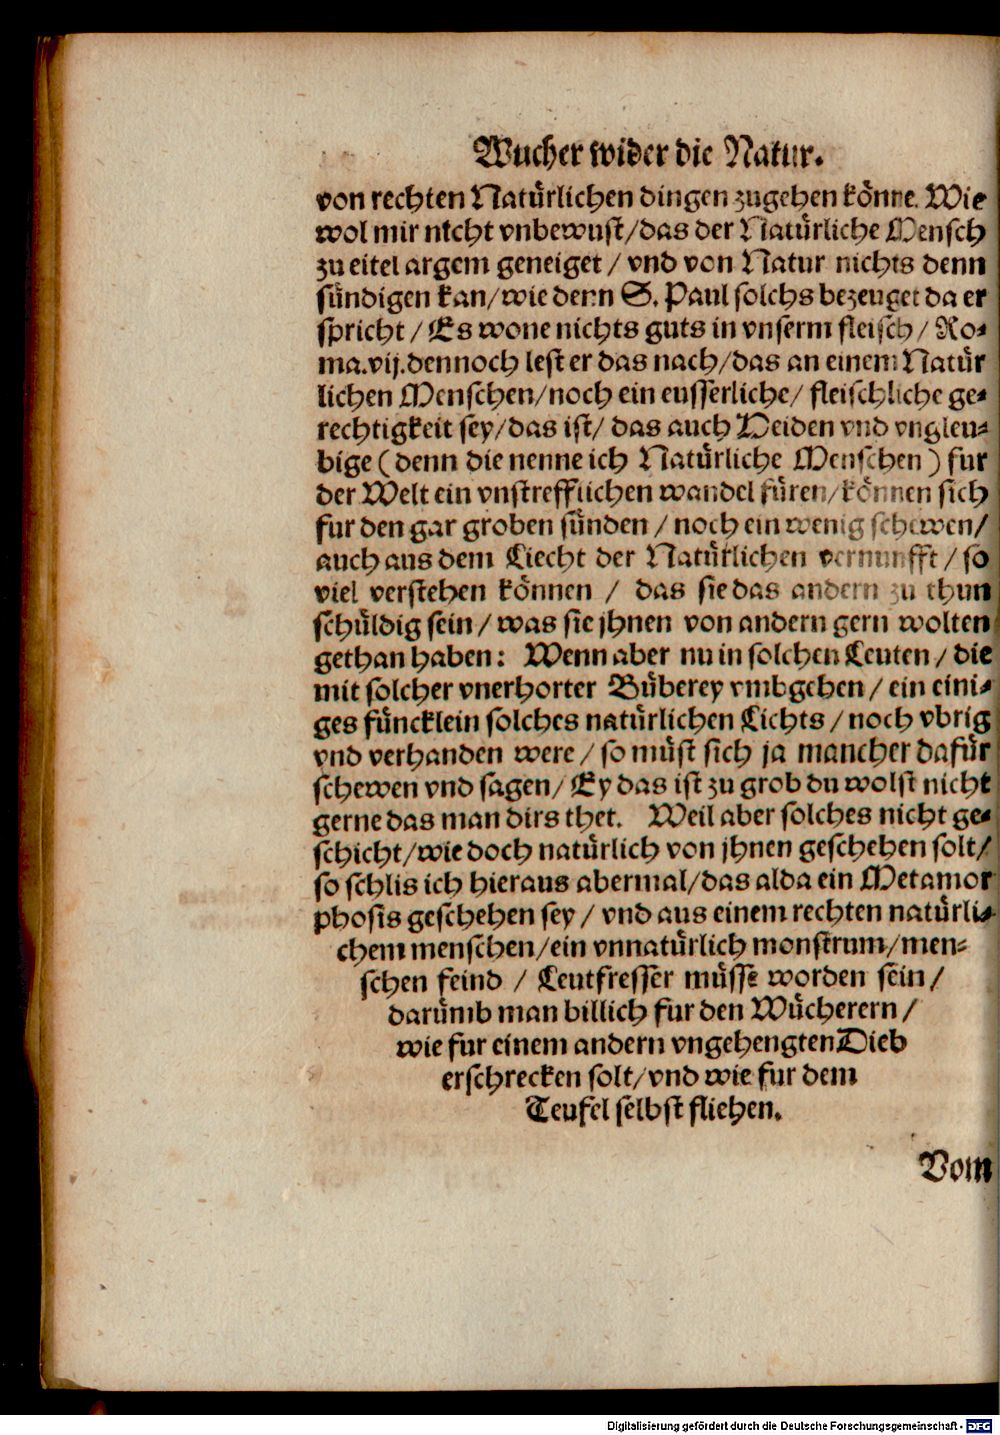 Wucher wider die Natur.
von rechten Natürlichen dingen zugehen könne. Wie
wol mir nicht vnbewust/das der Natürliche Mensch
zu eitel argem geneiget / vnd von Natur nichts denn
sündigen kan/wie denn S. Paul solchs bezeuget da er
spricht / Es wone nichts guts in vnserm fleisch / Ro⸗
ma.vij.dennoch lest er das nach/das an einem Natür
lichen Menschen/noch ein eusserliche/ fleischliche ge⸗
rechtigkeit sey/das ist/ das auch Heiden vnd vngleu⸗
bige (denn die nenne ich Natürliche Menschen) fur
der Welt ein vnstrefflichen wandel füren/können sich
fur den gar groben sünden / noch ein wenig schewen/
auch aus dem Liecht der Natürlichen vernunfft / so
viel verstehen können / das sie das andern zu thun
schüldig sein / was sie jhnen von andern gern wolten
gethan haben: Wenn aber nu in solchen Leuten / die
mit solcher vnerhorter Büberey vmbgehen / ein eini⸗
ges füncklein solches natürlichen Lichts / noch vbrig
vnd verhanden were / so müst sich ja mancher dafür
schewen vnd sagen/ Ey das ist zu grob du wolst nicht
gerne das man dirs thet. Weil aber solches nicht ge⸗
schicht/wie doch natürlich von jhnen geschehen solt/
so schlis ich hieraus abermal/das alda ein Metamor
phosis geschehen sey / vnd aus einem rechten natürli⸗
chem menschen/ein vnnatürlich monstrum/men⸗
schen feind / Leutfresser müsse worden sein /
darümb man billich fur den Wücherern /
wie fur einem andern vngehengten Dieb
erschrecken solt/vnd wie fur dem
Teufel selbst fliehen.
Vom
Digitalisierung gefördert durch die Deutsche Forschungsgemeinschaft - DFG